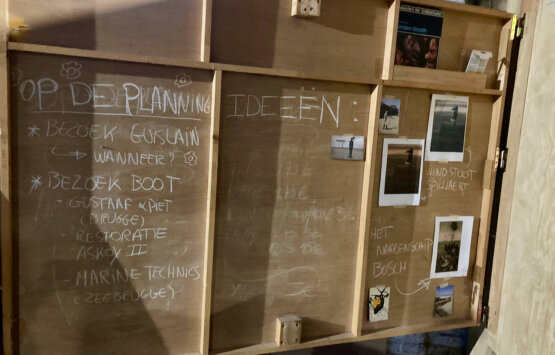 OP DE PLANNING
* BEZOEK GUISLAIN
→ WANNEER?
* BEZOEK BOOT
- GUSTAAF & PIET
(BRUGGE)
- RESTORATIE
ASKOY II
- MARINE TECHNICS
(ZEEBRUGGE)
IDEEËN:
WINDSTOOT
SPILLIAERT
HET
NARRENSCHIP
BOSCH